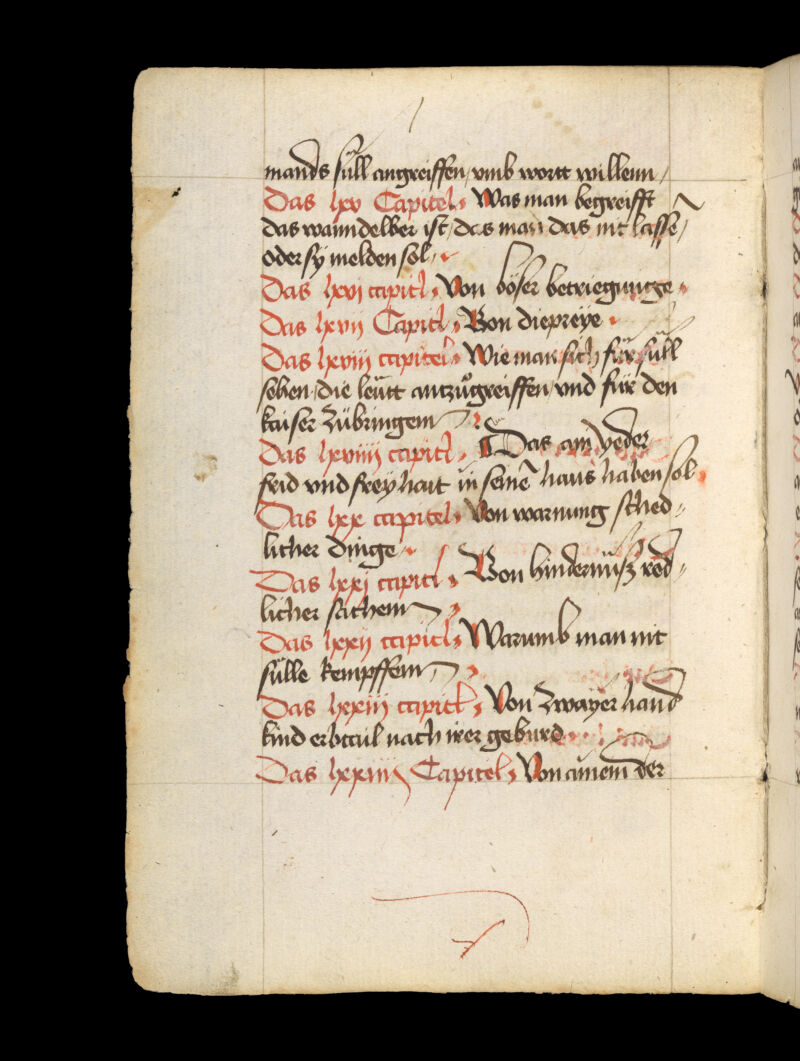 mands süll angreiffen / vmb wortt willenn /
Das lxv Capitel Was man begreifft
das wanndelber ist / das man das nit lasse /
oder sÿ melden sol
Das lxvi capitl Von böser betriegunge
Das lxvii Capitl Von diepreÿe
Das lxviii capitel Wie man sich für süll
seben / die leütt antzůgreiffen / vnd für den
kaiser zübringem
Das lxviiii capitl ¶ Das ain yeder
frid vnd freÿhait in seinē haus haben sol
Das lxx capitel Von warnung sched„
licher dinge
Das lxxi capitl Von hindernüsz red„
licher sachem
Das lxxii capitl Warumb man nit
sülle kempffem
Das lxxiii capitl Von zwayer hand
kind erbtail nach irer geburd
Das lxxiiii Capitel Von ainem der